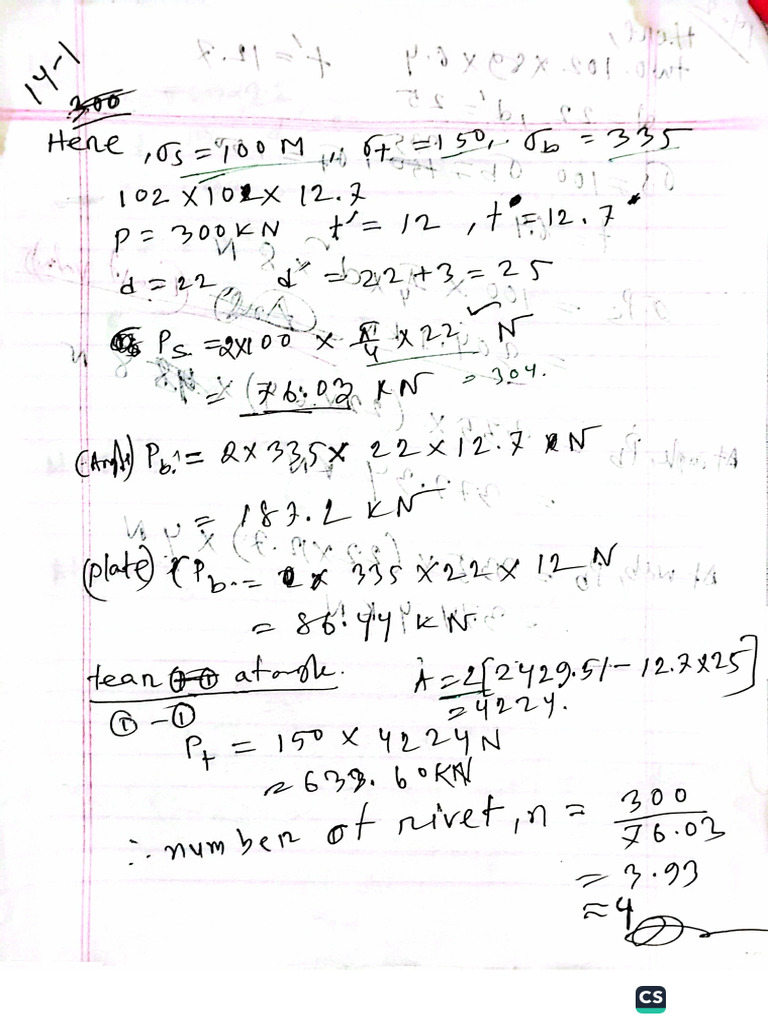 14-1
300
Here, σs = 100 M, σt = 150, σb = 335
102 × 102 × 12.7
P = 300 KN t' = 12, t = 12.7
d = 22, d' = 22 + 3 = 25
Ps = 2×100 × π/4 × 22 N
= 76.03 KN = 304.
(Angle) Pb = 2 × 335 × 22 × 12.7 N
= 187.2 KN
(plate) Pb = 335 × 22 × 12 N
= 86.44 KN
tear at angle. A = 2[2429.51 - 12.7×25]
= 4224.
① - ①
Pt = 150 × 4224 N
= 633.60 KN
∴ number of rivet, n = 300/76.03
= 3.93
≈ 4
CS